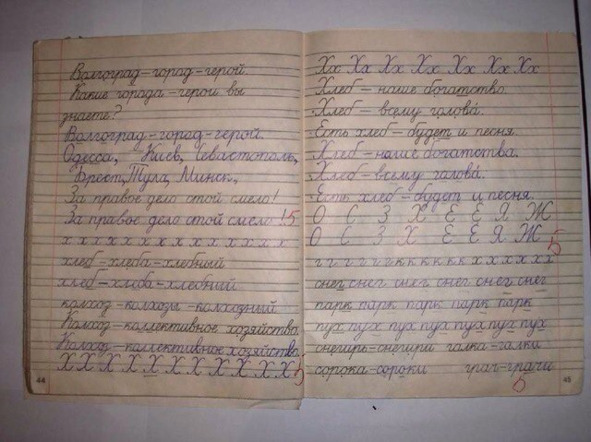 Волгоград – город – герой.
Какие города – герои вы
знаете?
Волгоград – город – герой.
Одесса, Киев, Севастополь,
Брест, Тула, Минск,
За правое дело стой смело!
За правое дело стой смело! 5
х х х х х х х х х х х х х
хлеб – хлеба – хлебный
хлеб – хлеба – хлебный
колхоз – колхозы – колхозный
Колхоз – коллективное хозяйство.
Колхоз – коллективное хозяйство.
Х Х Х Х Х Х Х Х Х Х Х 5
44
Хх Хх Хх Хх Хх Хх Хх
Хлеб – наше богатство.
Хлеб – всему голова́.
Есть хлеб – будет и песня.
Хлеб – наше богатства.
Хлеб – всему голова́.
Есть хлеб – будет и песня.
О С З Х Е Ё Я Ж
О С З Х Е Ё Я Ж 5
г г г г г г к к к к к к х х х х х х
снег снег снег снег снег снег
парк парк парк парк парк
пух пух пух пух пух пух пух
снегирь – снегири галка – галки
сорока – сороки грач – грачи
5
45